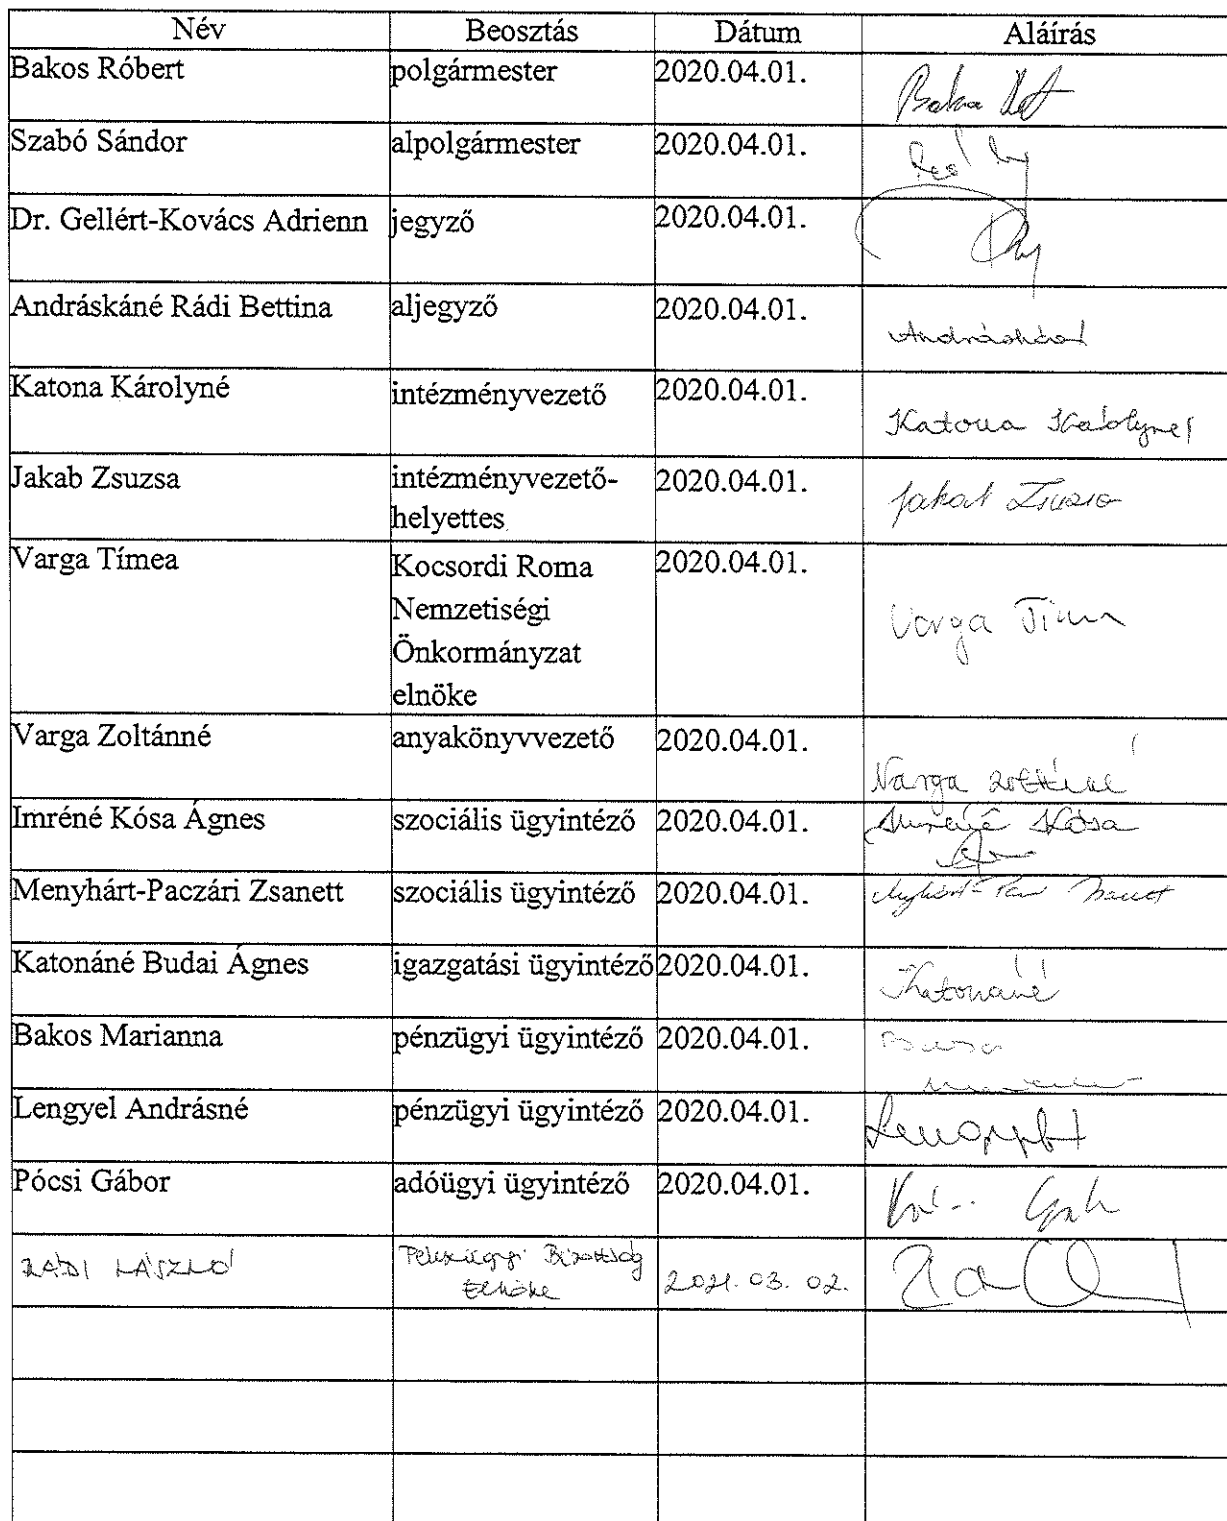 Név Beosztás Dátum Aláírás
Bakos Róbert polgármester 2020.04.01.
Szabó Sándor alpolgármester 2020.04.01.
Dr. Gellért-Kovács Adrienn jegyző 2020.04.01.
Andráskáné Rádi Bettina aljegyző 2020.04.01.
Katona Károlyné intézményvezető 2020.04.01. Katona Károlyné
Jakab Zsuzsa intézményvezető- 2020.04.01. Jakab Zsuzsa
helyettes
Varga Tímea Kocsordi Roma 2020.04.01. Varga Tímea
Nemzetiségi
Önkormányzat
elnöke
Varga Zoltánné anyakönyvvezető 2020.04.01. Varga Zoltánné
Imréné Kósa Ágnes szociális ügyintéző 2020.04.01. Imréné Kósa
Menyhárt-Paczári Zsanett szociális ügyintéző 2020.04.01.
Katonáné Budai Ágnes igazgatási ügyintéző 2020.04.01. Katonáné
Bakos Marianna pénzügyi ügyintéző 2020.04.01.
Lengyel Andrásné pénzügyi ügyintéző 2020.04.01.
Pócsi Gábor adóügyi ügyintéző 2020.04.01.
RÁDI LÁSZLÓ Pénzügyi Bizottság 2021.03.02.
Elnöke